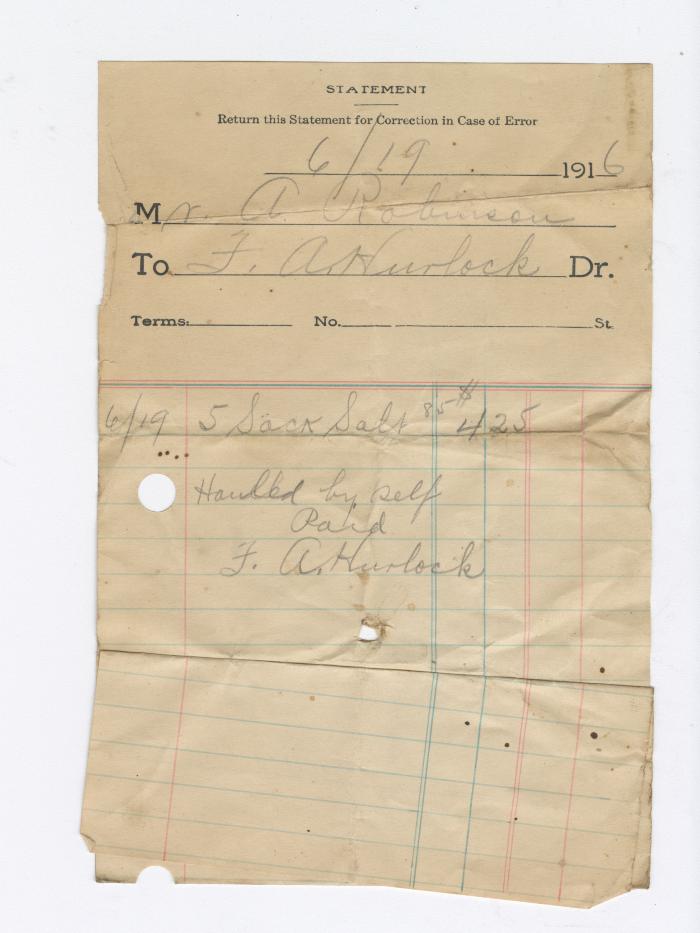 STATEMENT
Return this Statement for Correction in Case of Error
6/19 1916
Mr. A. Robinson
To F. A. Hurlock Dr.
Terms: No. St.
6/19 5 Sack Salt 85 $ 4 25
Haulled by self
Paid
F. A. Hurlock